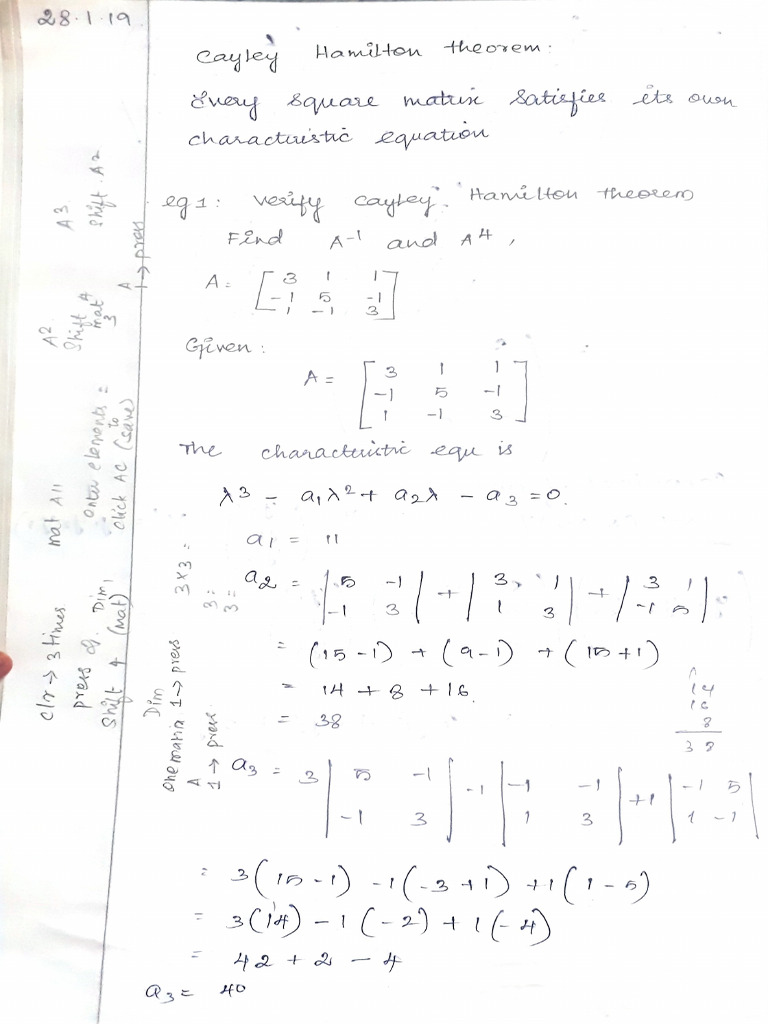 28.1.19
Cayley Hamilton theorem:
Every square matrix satisfies its own
characteristic equation
eg 1: Verify Cayley Hamilton theorem
Find A⁻¹ and A⁴,
A = [ 3 1 1
-1 5 -1
1 -1 3 ]
Given:
A = [ 3 1 1
-1 5 -1
1 -1 3 ]
The characteristic equ is
λ³ - a₁λ² + a₂λ - a₃ = 0.
a₁ = 11
a₂ = | 5 -1 | + | 3 1 | + | 3 1 |
| -1 3 | | 1 3 | | -1 5 |
= (15-1) + (9-1) + (15+1)
= 14 + 8 + 16
= 38
14
16
8
38
a₃ = 3 | 5 -1 | -1 | -1 -1 | +1 | -1 5 |
| -1 3 | | 1 3 | | 1 -1 |
= 3(15-1) -1(-3+1) +1(1-5)
= 3(14) - 1(-2) + 1(-4)
= 42 + 2 - 4
a₃ = 40
clr → 3 times
press
Shift 4 (mat)
Dim,
mat A11
enter elements =
to
click AC (save)
A2
Shift 4
mat
3
A
1 → press
A3
Shift A2
Dim
one matrix 1 → press
A
1 → press
3x3 =
3 =
3 =